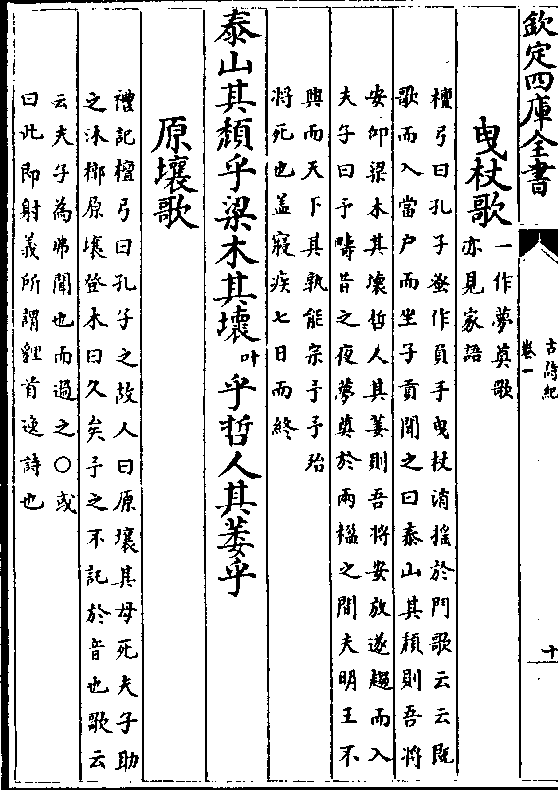 欽定四庫全書
古詩紀
卷一
十
曳杖歌
一作夢奠歌
亦見家語
檀弓曰孔子蚤作負手曳杖消搖於門歌云云既
歌而入當户而坐子貢聞之曰泰山其頹則吾將
安仰梁木其壞哲人其萎則吾將安放遂趨而入
夫子曰予疇昔之夜夢奠於兩楹之間夫明王不
興而天下其孰能宗予予殆
將死也盖寢疾七日而終
泰山其頹乎梁木其壞叶乎哲人其萎乎
原壤歌
禮記檀弓曰孔子之故人曰原壤其母死夫子助
之沐槨原壤登木曰久矣予之不託於音也歌云
云夫子為弗聞也而過之○或
曰此即射義所謂貍首逸詩也